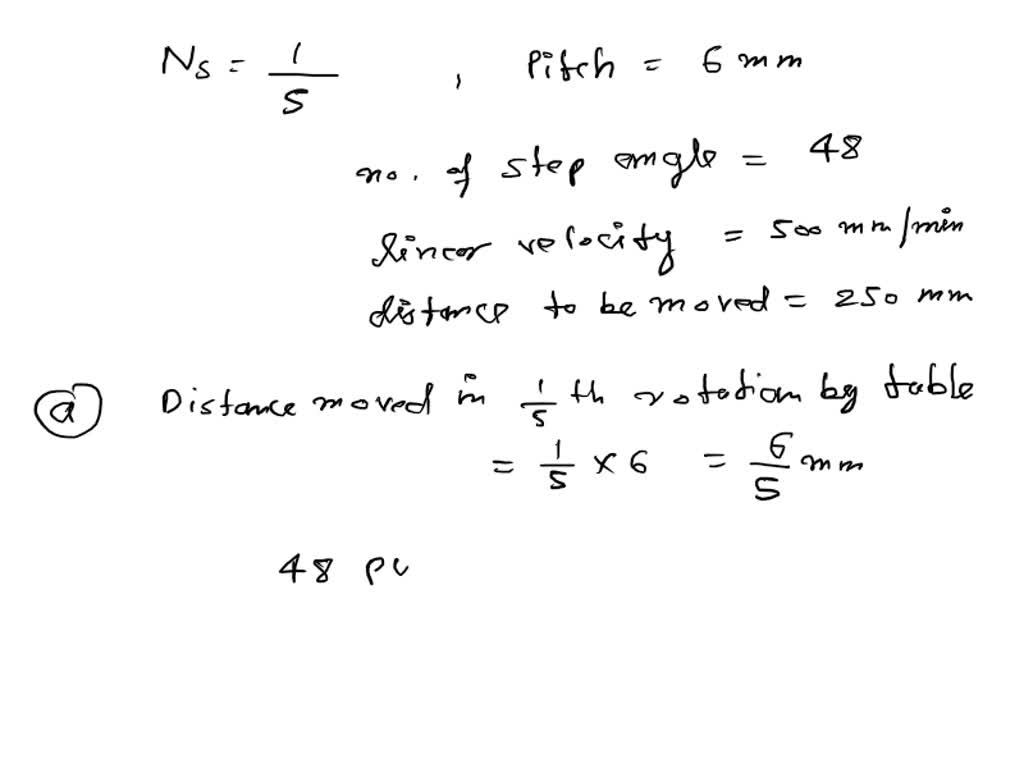 Ns = 1/5 , Pitch = 6 mm
no. of step angle = 48
linear velocity = 500 mm/min
distance to be moved = 250 mm
(a) Distance moved in 1/5 th rotation by table
= 1/5 × 6 = 6/5 mm
48 pu